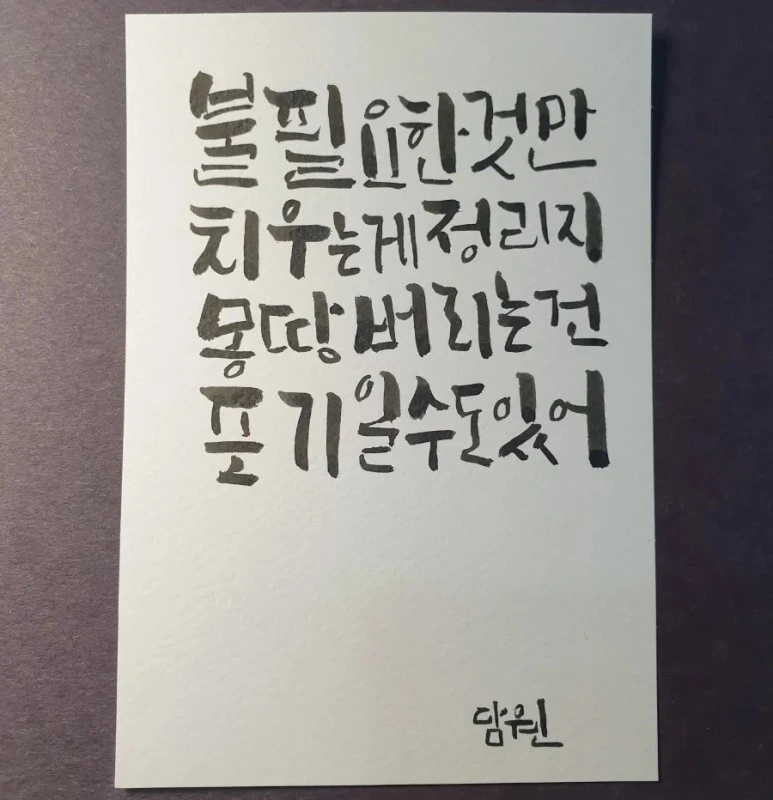 불필요한 것만
치우는게 정리지
몽땅 버리는건
포기일수도있어
담원